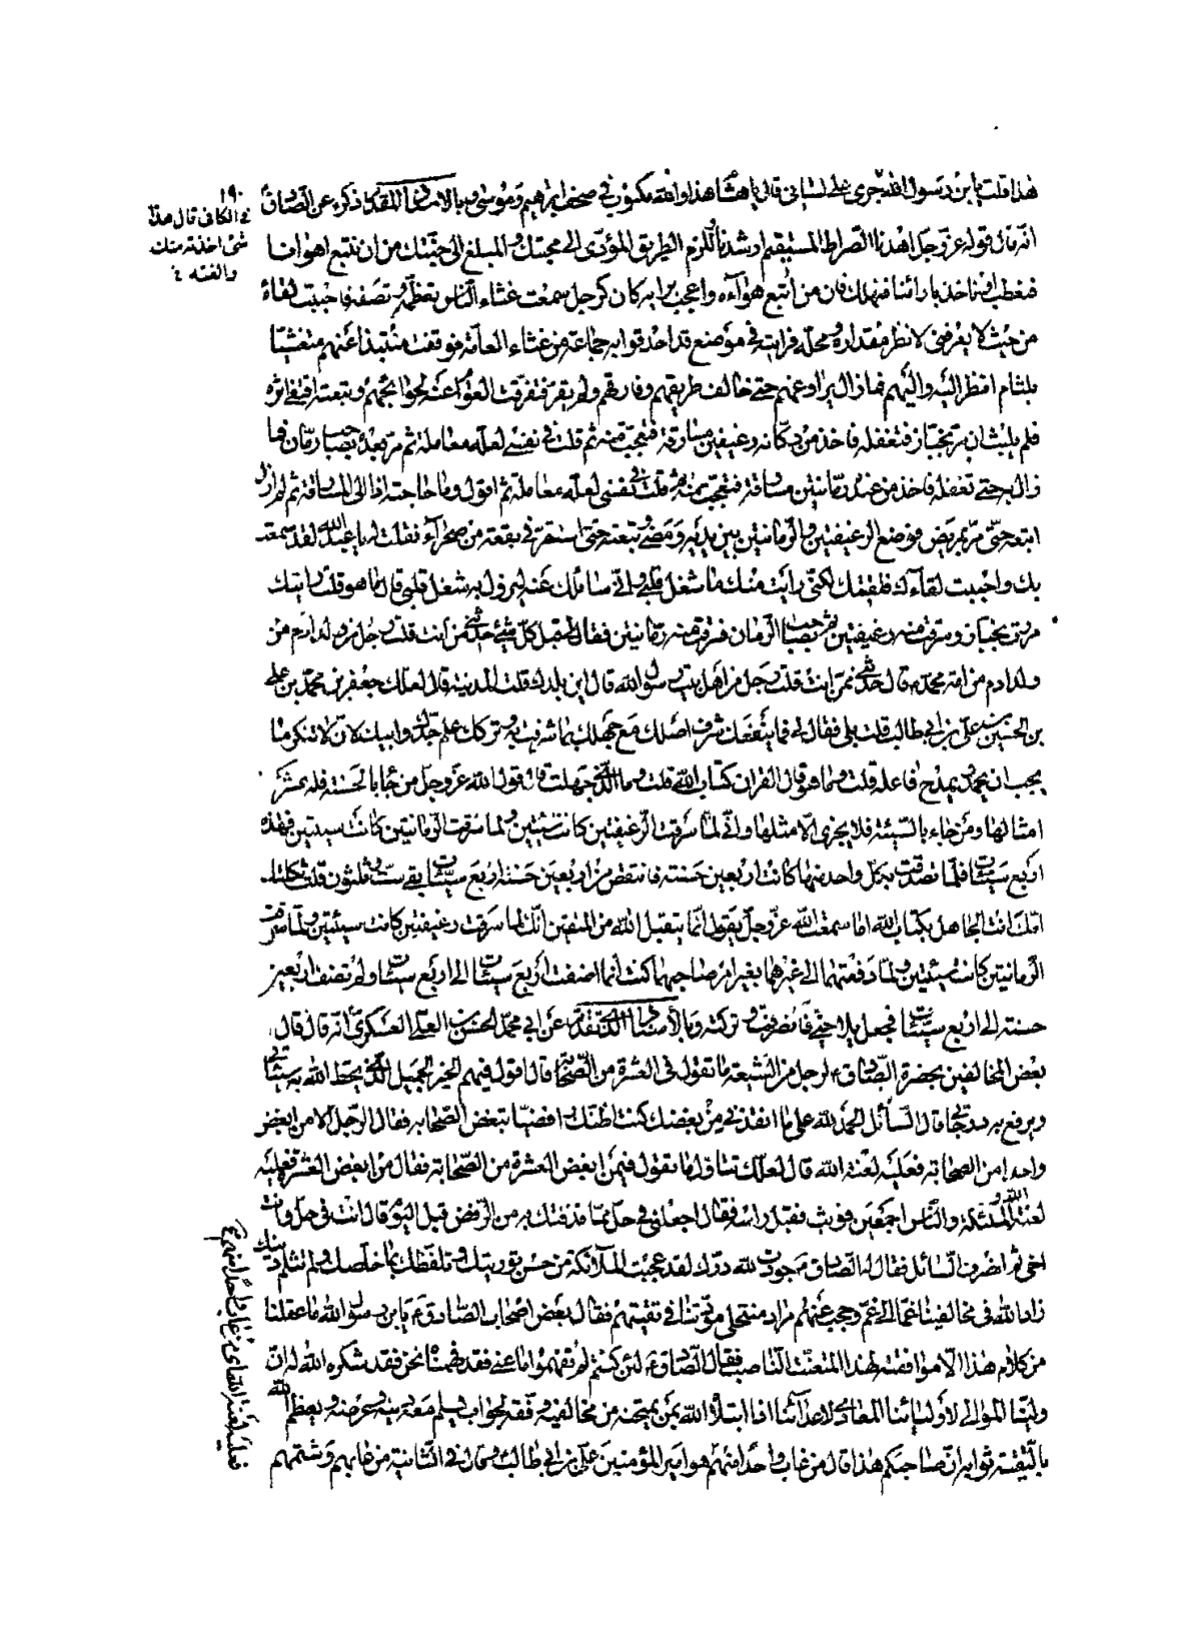 هذا قلت يا بن رسول الله جرى على لساني قال يا هشام هذا والله مكتوب في صحف ابراهيم وموسى وبالاسناد المقدم ذكره عن الصادق
انه قال قوله عز وجل اهدنا الصراط المستقيم ارشدنا للزوم الطريق المؤدي الى محبتك والمبلغ الى جنتك من ان نتبع اهوائنا
فنعطب او ناخذ بارائنا فنهلك فان من اتبع هواه واعجب برايه كان كرجل سمعت غثاء الناس تعظمه وتصفه فاحببت لقاءه
من حيث لا يعرفني لانظر مقداره ومحله فرايته في موضع قد احدقوا به جماعة من غثاء العامة فوقفت منتبذا عنهم متغشيا
بلثام انظر اليه واليهم فما زال يراوغهم حتى خالف طريقهم وفارقهم ولم يقر فتفرقت العوام عنه لحوائجهم وتبعته اقتفي اثره
فلم يلبث ان مر بخباز فتغفله فاخذ من دكانه رغيفين مسارقة فتعجبت منه ثم قلت في نفسي لعله معاملة ثم مر بعده بصاحب رمان فما
زال به حتى تغفله فاخذ من عنده رمانتين مسارقة فتعجبت منه ثم قلت في نفسي لعله معاملة ثم اقول وما حاجته اذا الى المسارقة ثم لم ازل
اتبعه حتى مر بمريض فوضع الرغيفين والرمانتين بين يديه ومضى وتبعته حتى استقر في بقعة من صحراء فقلت له يا عبد الله لقد سمعت
بك واحببت لقاءك فلقيتك لكني رايت منك ما شغل قلبي واني سائلك عنه ليزول به شغل قلبي قال ما هو قلت رايتك
مررت بخباز وسرقت منه رغيفين ثم بصاحب الرمان فسرقت منه رمانتين فقال لي قبل كل شئ حدثني من انت قلت رجل من ولد ادم من
ولد ادم من امة محمد ص قال حدثني ممن انت قلت رجل من اهل بيت رسول الله قال اين بلدك قلت المدينة قال لعلك جعفر بن محمد بن علي
بن الحسين بن علي بن ابي طالب قلت بلى فقال لي فما ينفعك شرف اصلك مع جهلك بما شرفت به وتركك علم جدك وابيك لان لا تنكر ما
يجب ان يحمد ويمدح فاعله قلت وما هو قال القران كتاب الله قلت وما الذي جهلت قال قول الله عز وجل من جاء بالحسنة فله عشر
امثالها ومن جاء بالسيئة فلا يجزى الا مثلها واني لما سرقت الرغيفين كانت سيئتين ولما سرقت الرمانتين كانت سيئتين فهذه
اربع سيئات فلما تصدقت بكل واحد منها كانت اربعين حسنة فانتقص من اربعين حسنة اربع سيئات بقي ست وثلثون قلت ثكلتك
امك انت الجاهل بكتاب الله اما سمعت الله عز وجل يقول انما يتقبل الله من المتقين انك لما سرقت رغيفين كانت سيئتين ولما سرقت
الرمانتين كانت سيئتين ولما دفعتهما الى غيرهما بغير امر صاحبهما كنت انما اضفت اربع سيئات الى اربع سيئات ولم تضف اربعين
حسنة الى اربع سيئات فجعل يلاحيني فانصرفت وتركته وبالاسناد الذي تقدم عن ابي محمد الحسن بن العلي العسكري انه قال قال
بعض المخالفين بحضرة الصادق ع لرجل من الشيعة ما تقول في العشرة من الصحابة قال اقول فيهم الخير الجميل الذي يحط الله به سيئاتي
ويرفع به درجاتي قال السائل الحمد لله على ما انقذني من بغضك كنت اظنك رافضيا تبغض الصحابة فقال الرجل الا من ابغض
واحدا من الصحابة فعليه لعنة الله قال لعلك تتاول ما تقول فيمن ابغض العشرة من الصحابة فقال من ابغض العشرة فعليه
لعنة الله والملائكة والناس اجمعين فوثب فقبل راسه فقال اجعلني في حل مما قذفتك به من الرفض قبل اليوم قال انت في حل وانت
اخي ثم انصرف السائل فقال له الصادق ع جودت لله درك لقد عجبت الملائكة من حسن توريتك وتلفظك بما خلصك ولم تثلم دينك
زاد الله في مخالفينا غما الى غم وحجب عنهم مراد منتحلي مودتنا في تقيتهم فقال بعض اصحاب الصادق ع يا بن رسول الله ما عقلنا
من كلام هذا الا موافقته لهذا المتعنت الناصب فقال الصادق ع لئن كنتم لم تفهموا ما عنى فقد فهمنا نحن فقد شكره الله له ان
ولينا الموالي لاوليائنا المعادي لاعدائنا اذا ابتلاه الله بمن يمتحنه من مخالفيه وفقه لجواب يسلم معه دينه وعرضه ويعظم الله
بالتقية ثوابه ان صاحبكم هذا قال من عاب واحدا منهم هو امير المؤمنين علي بن ابي طالب وقال في الثانية من عابهم وشتمهم
١٩٠
في الكافي قال هذا
شئ اخذته منك
والفته
فعليه لعنة الله اي من عاب واحدا منهم